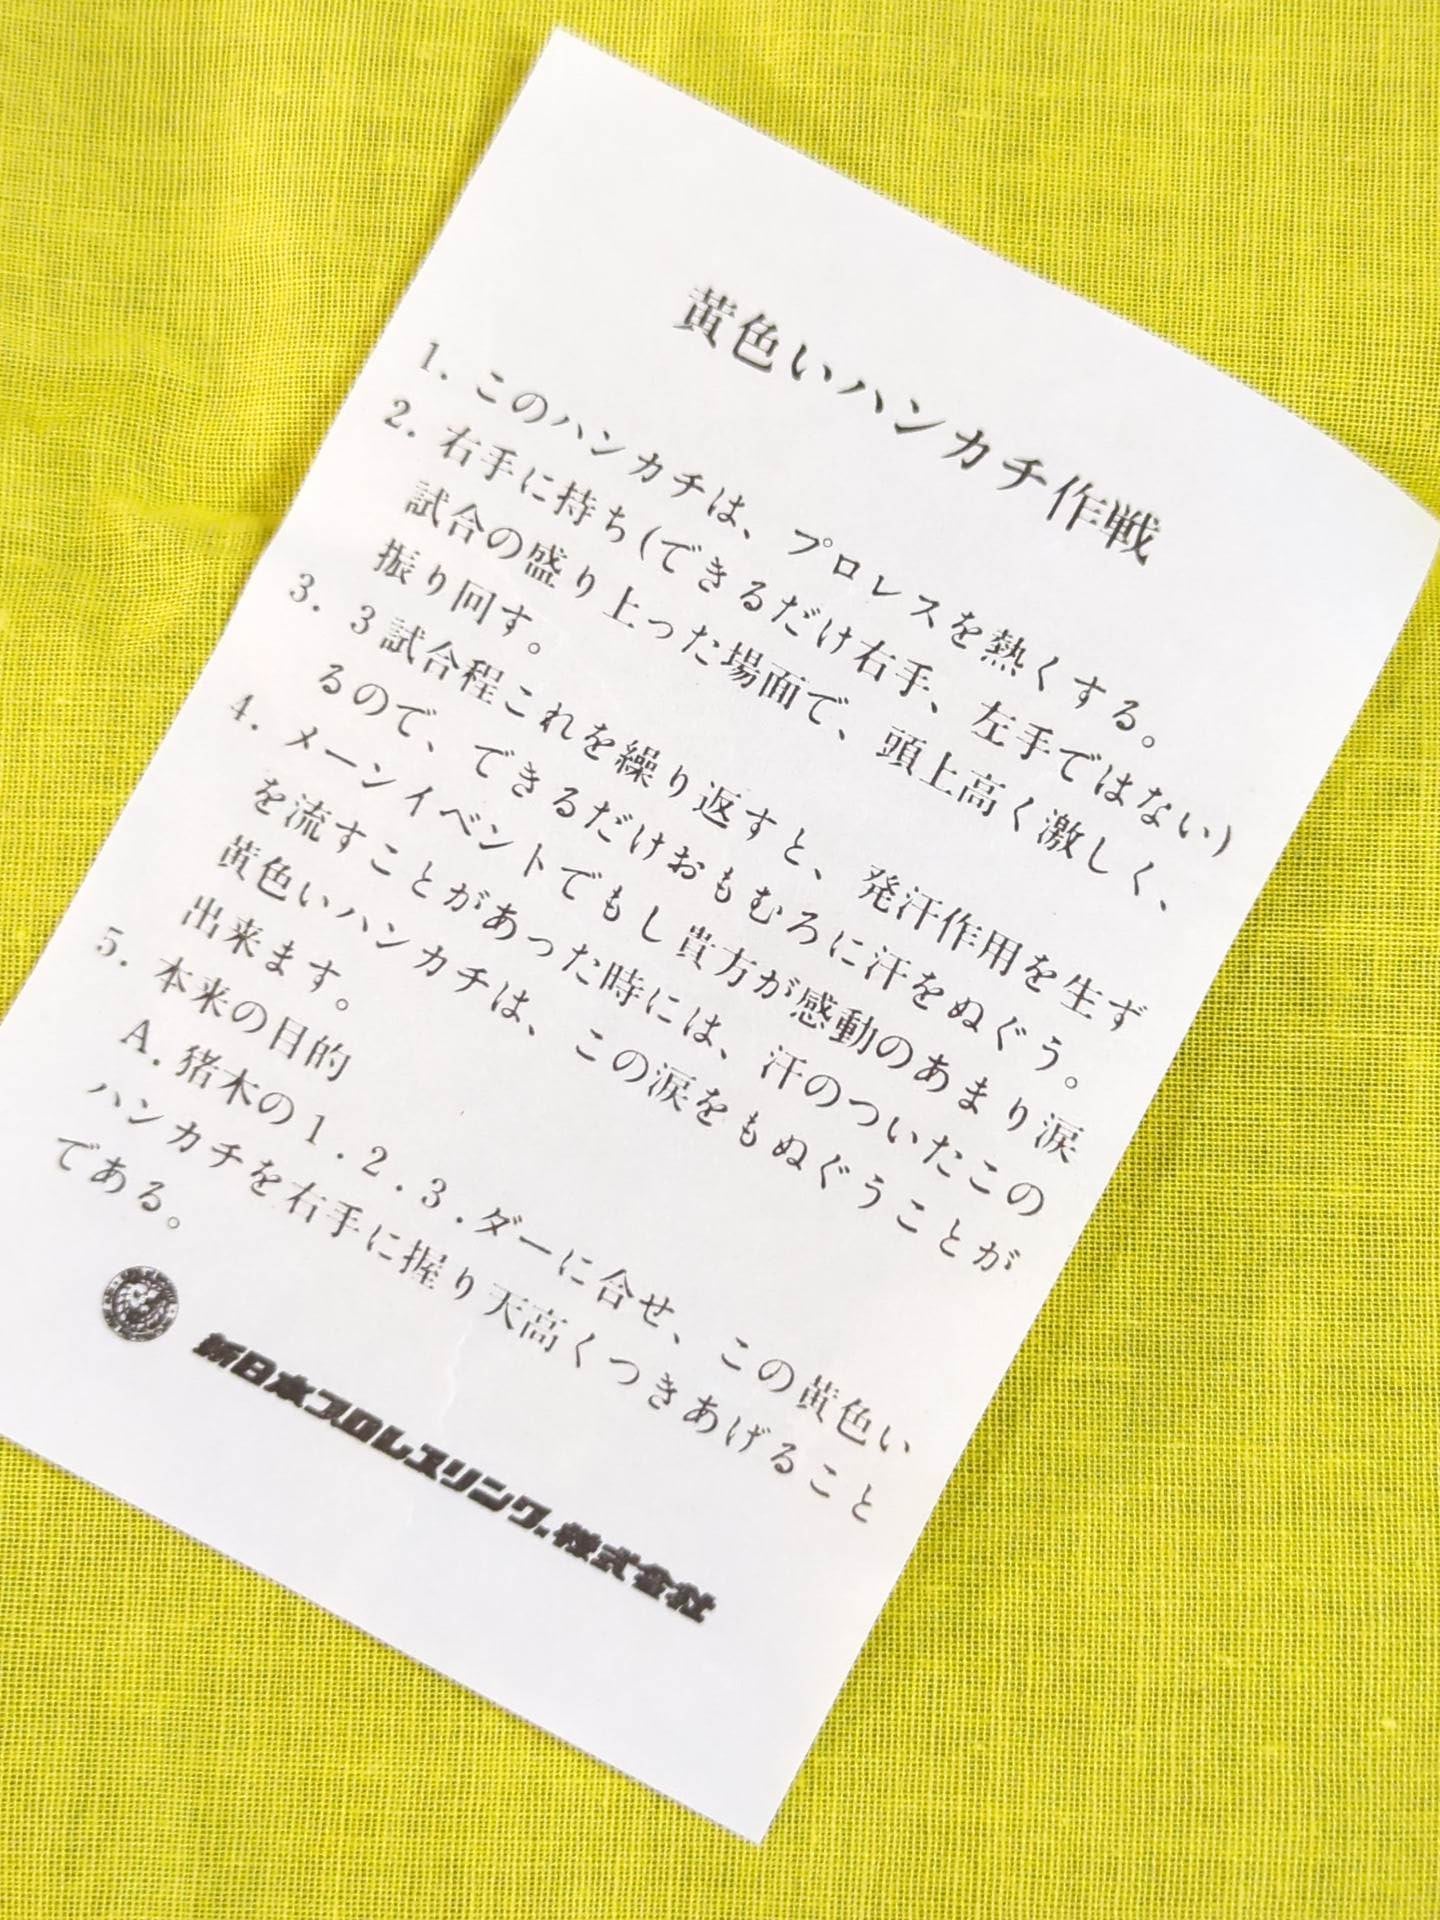 黄色いハンカチ作戦
1. このハンカチは、プロレスを熱くする。
2. 右手に持ち(できるだけ右手、左手ではない)
試合の盛り上った場面で、頭上高く激しく、
振り回す。
3. 3試合程これを繰り返すと、発汗作用を生ず
るので、できるだけおもむろに汗をぬぐう。
4. メーンイベントでもし貴方が感動のあまり涙
を流すことがあった時には、汗のついたこの
黄色いハンカチは、この涙をもぬぐうことが
出来ます。
5. 本来の目的
A. 猪木の1.2.3.ダーに合せ、この黄色い
ハンカチを右手に握り天高くつきあげること
である。
新日本プロレスリング株式会社